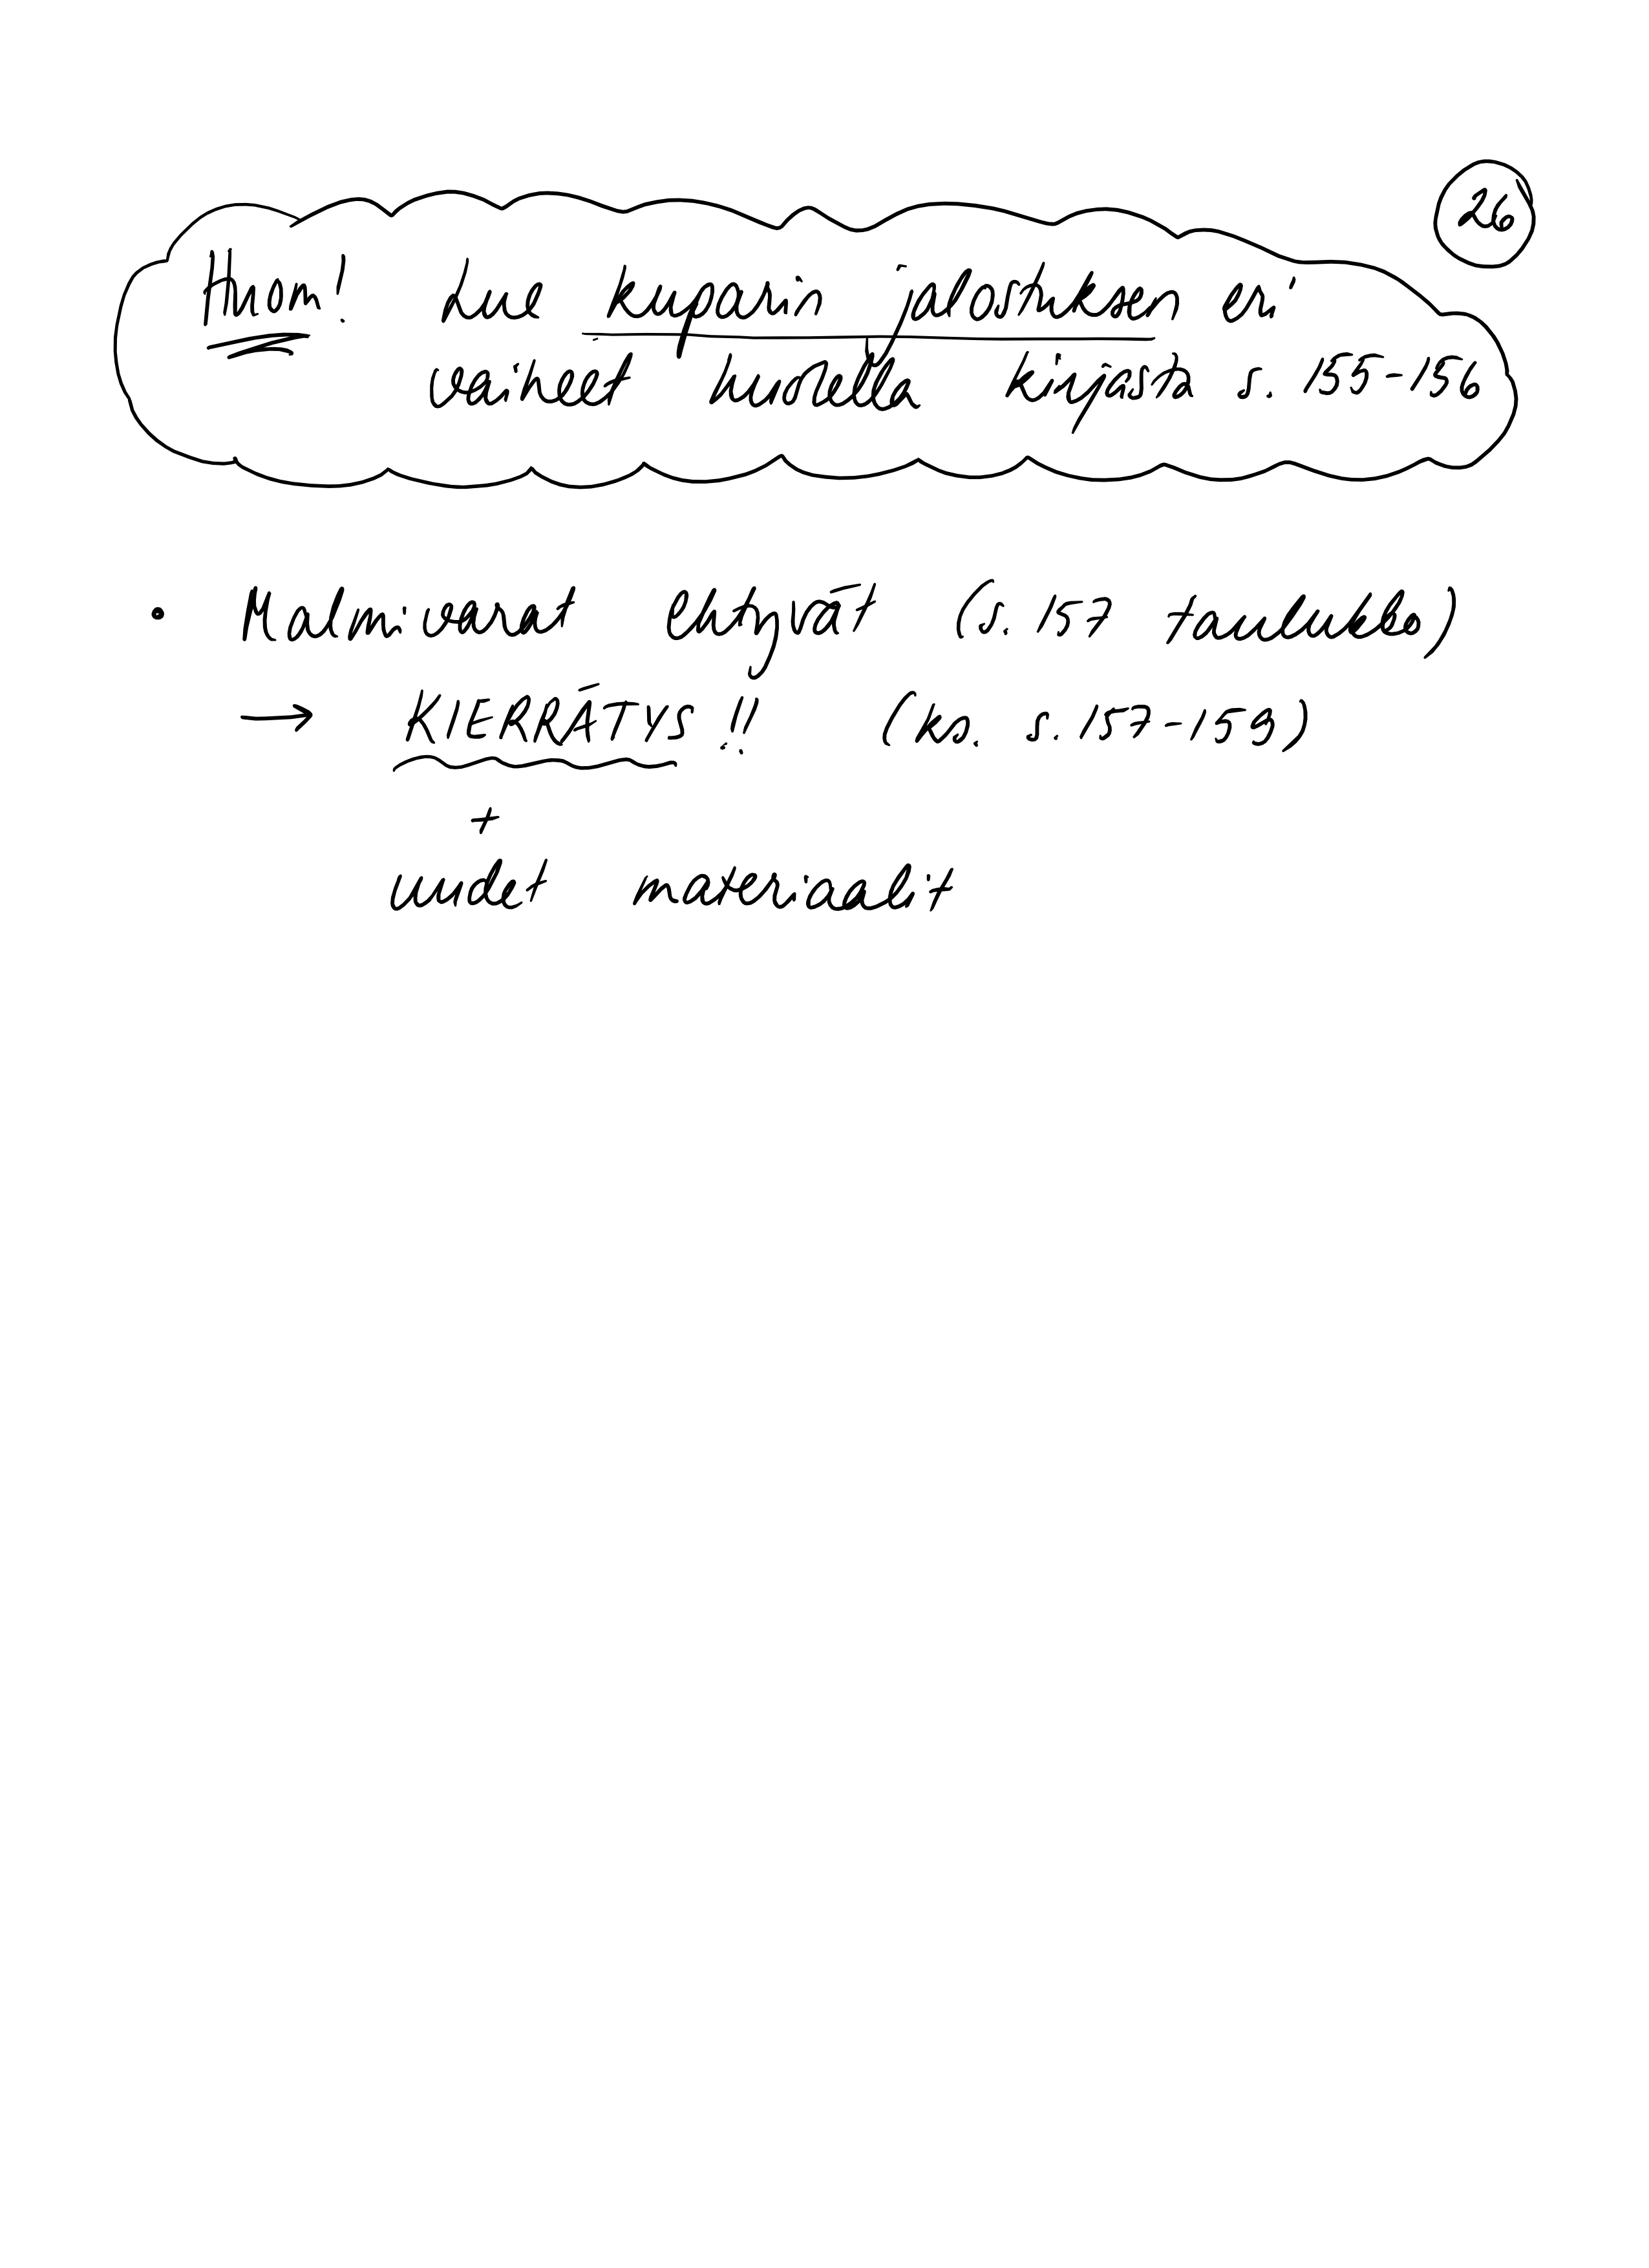 26
Huom! Lue kuparin jalostuksen eri
vaiheet huolella kirjasta s. 155-156
• Malmivarat ehtyvät (s. 157 taulukko)
→ KIERRÄTYS!! (ks. s. 157-159)
+
uudet materiaalit